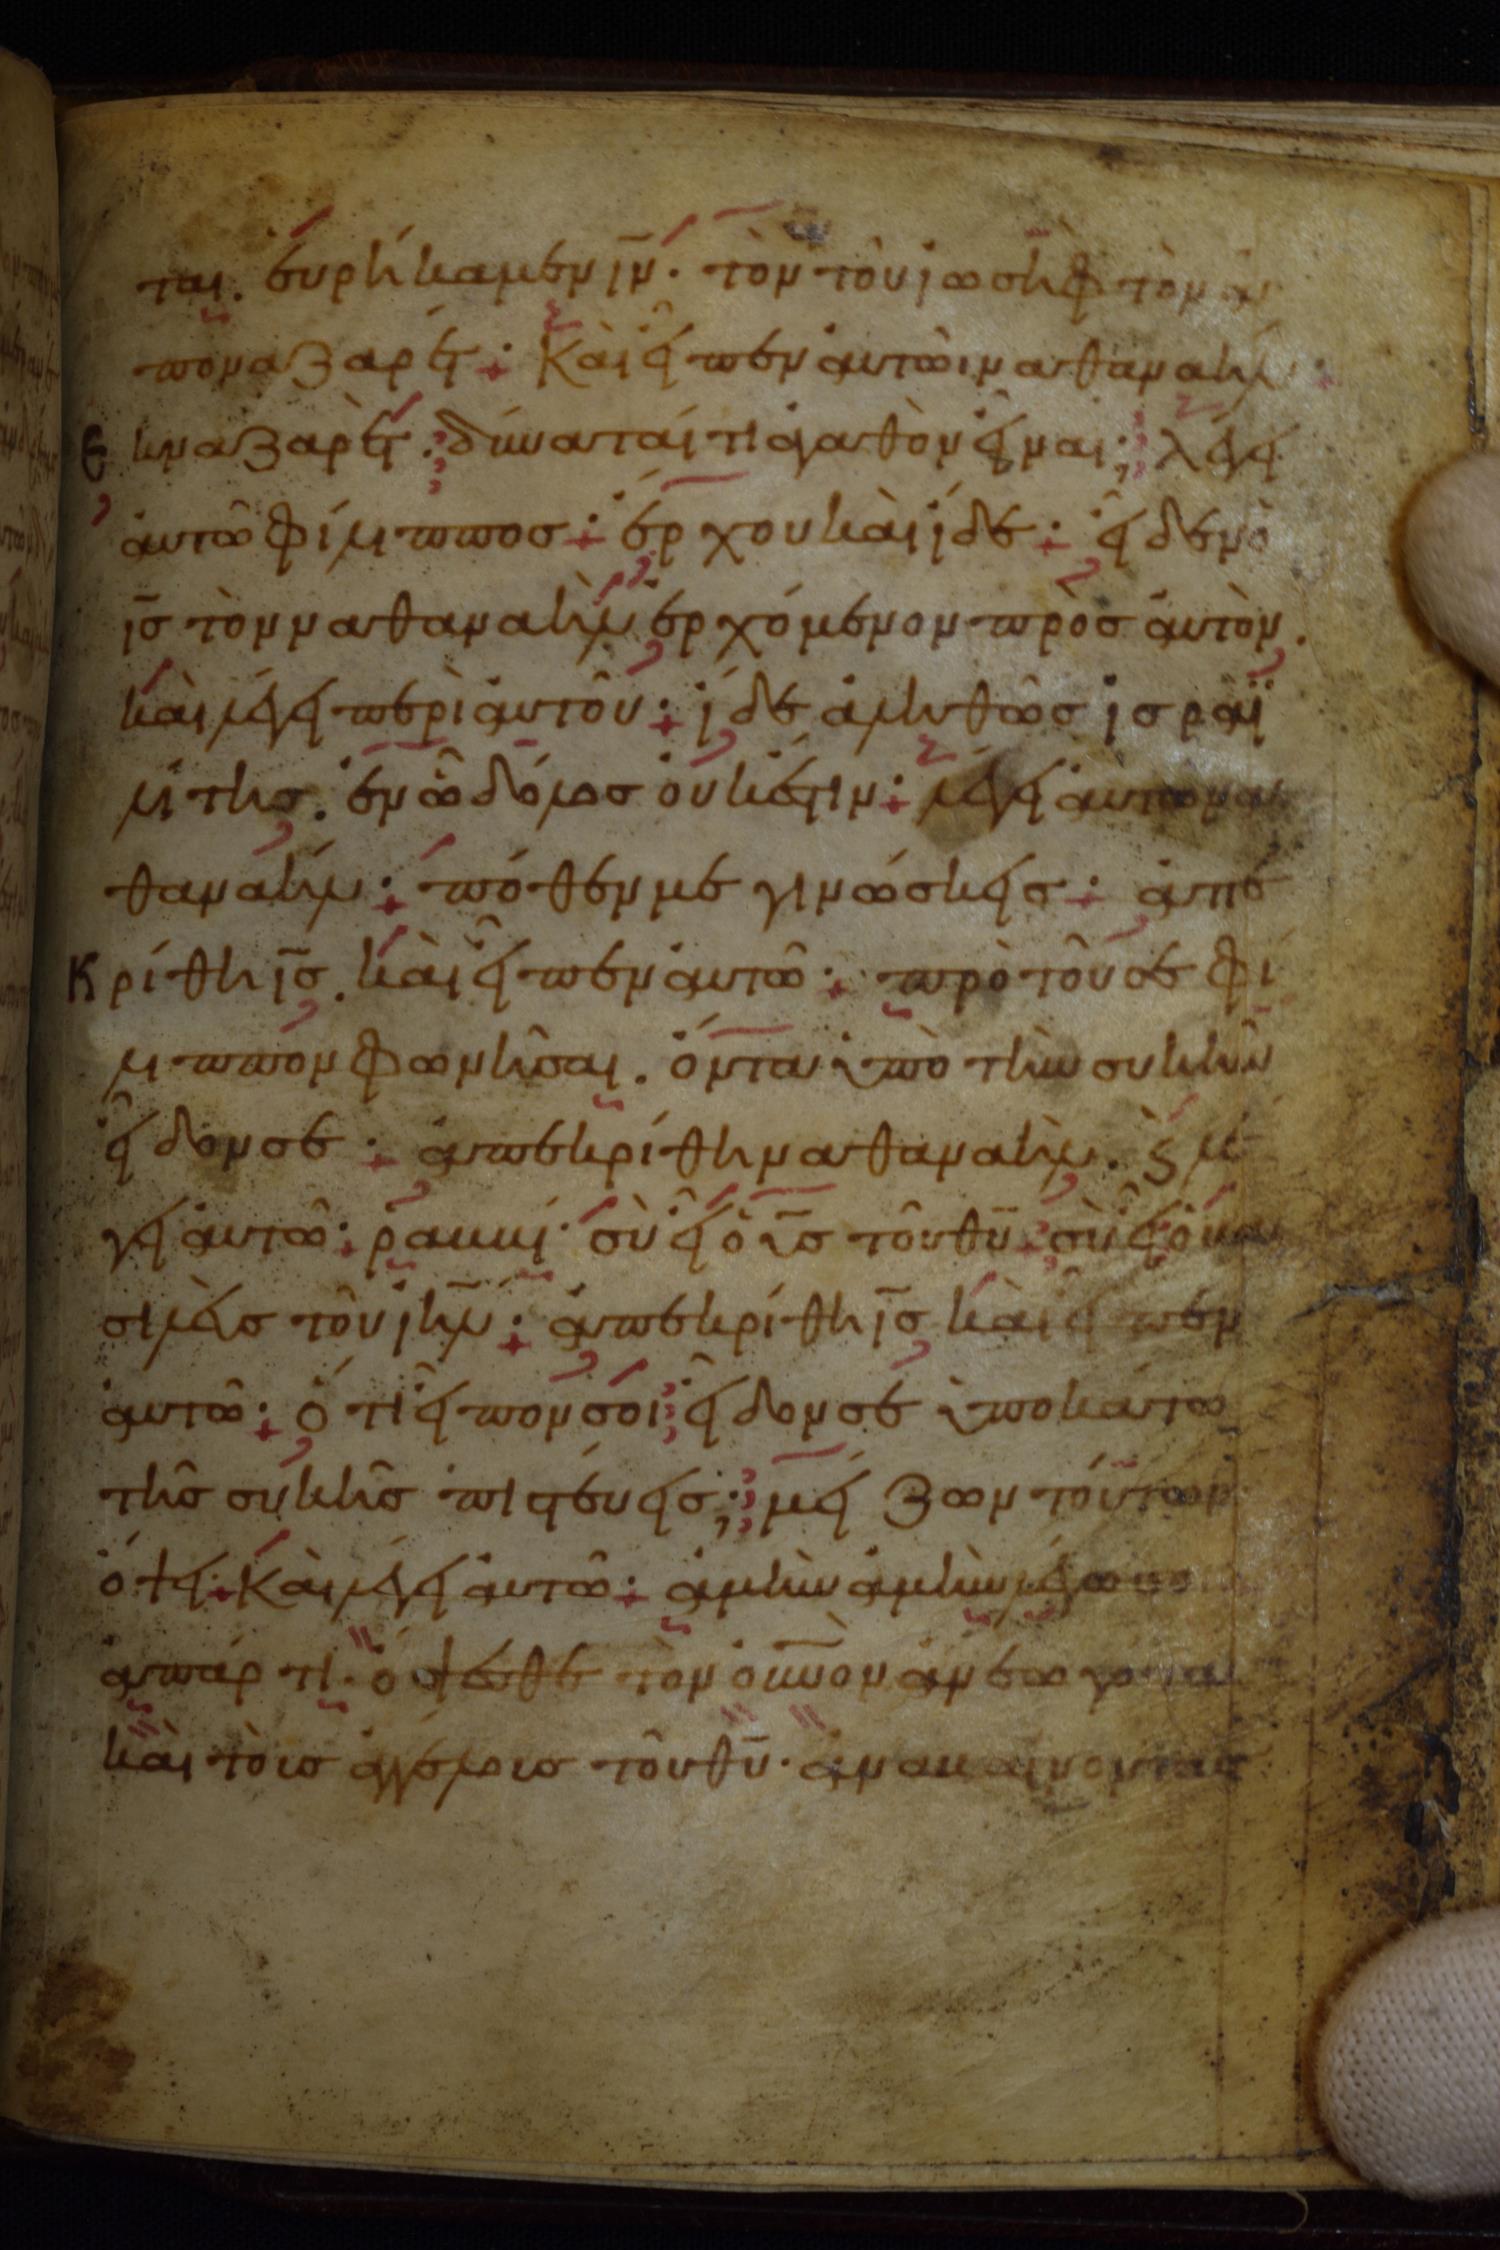 ται. εὑρήκαμεν ῑν̄· τὸν τοῦ ἰωσὴφ τὸν ἀ
πὸ ναζαρέτ: Καὶ εἶπεν αὐτῶι ναθαναήλ:
Εκ ναζαρὲτ: δύναταί τι ἀγαθὸν εἶναι; λέγει
αὐτῶ φίλιππος: ἔρχου καὶ ἴδε: εἶδεν ὁ
ῑς̄ τὸν ναθαναὴλ ἐρχόμενον πρὸς αὐτὸν.
καὶ λέγει περὶ αὐτοῦ: ἴδε ἀληθῶς ἰσραϊ
λίτης. ἐν ὧ δόλος οὐκ ἔστιν: λέγει αὐτῶ να
θαναήλ: πόθεν με γινώσκεις: ἀπε
Κρίθη ῑς̄. καὶ εἶπεν αὐτῶ: πρὸ τοῦ σε φί
λιππον φωνῆσαι. ὄντα ὑπὸ τὴν συκῆν
εἶδον σε: ἀπεκρίθη ναθαναὴλ. ϗ λέ
γει αὐτῶ: ῥαββί· σὺ εἶ ὁ ῡς̄ τοῦ θῡ: σὺ εἶ ὁ βα
σιλεὺς τοῦ ῑηλ̄: ἀπεκρίθη ῑς̄ καὶ εἶπεν
αὐτῶ: ὅτι εἶπον σοι: εἶδον σε ὑποκάτω
τῆς συκῆς πιστεύεις; μείζων τούτων
ὄψει: Καὶ λέγει αὐτῶ: ἀμὴν ἀμὴν λέγω
ἀπάρτι· ὄψεσθε τὸν οὐ̅νο̅ν ἀνεωγότα
καὶ τοὺς ἀγγέλους τοῦ θῡ· ἀναβαίνοντας